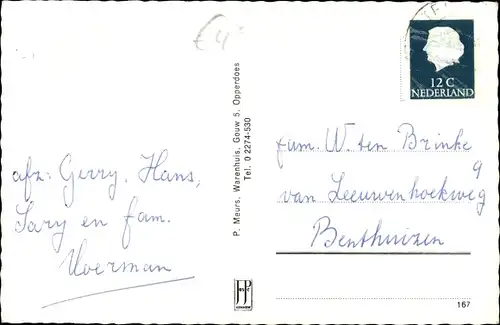 € 4
12 C
NEDERLAND
afz: Gerry, Hans,
Sary en fam.
Woerman
P. Meurs, Warenhuis, Gouw 5, Opperdoes
Tel. 0 2274-530
fam. W. ten Brinke
9
van Leeuwenhoekweg
Benthuizen
167